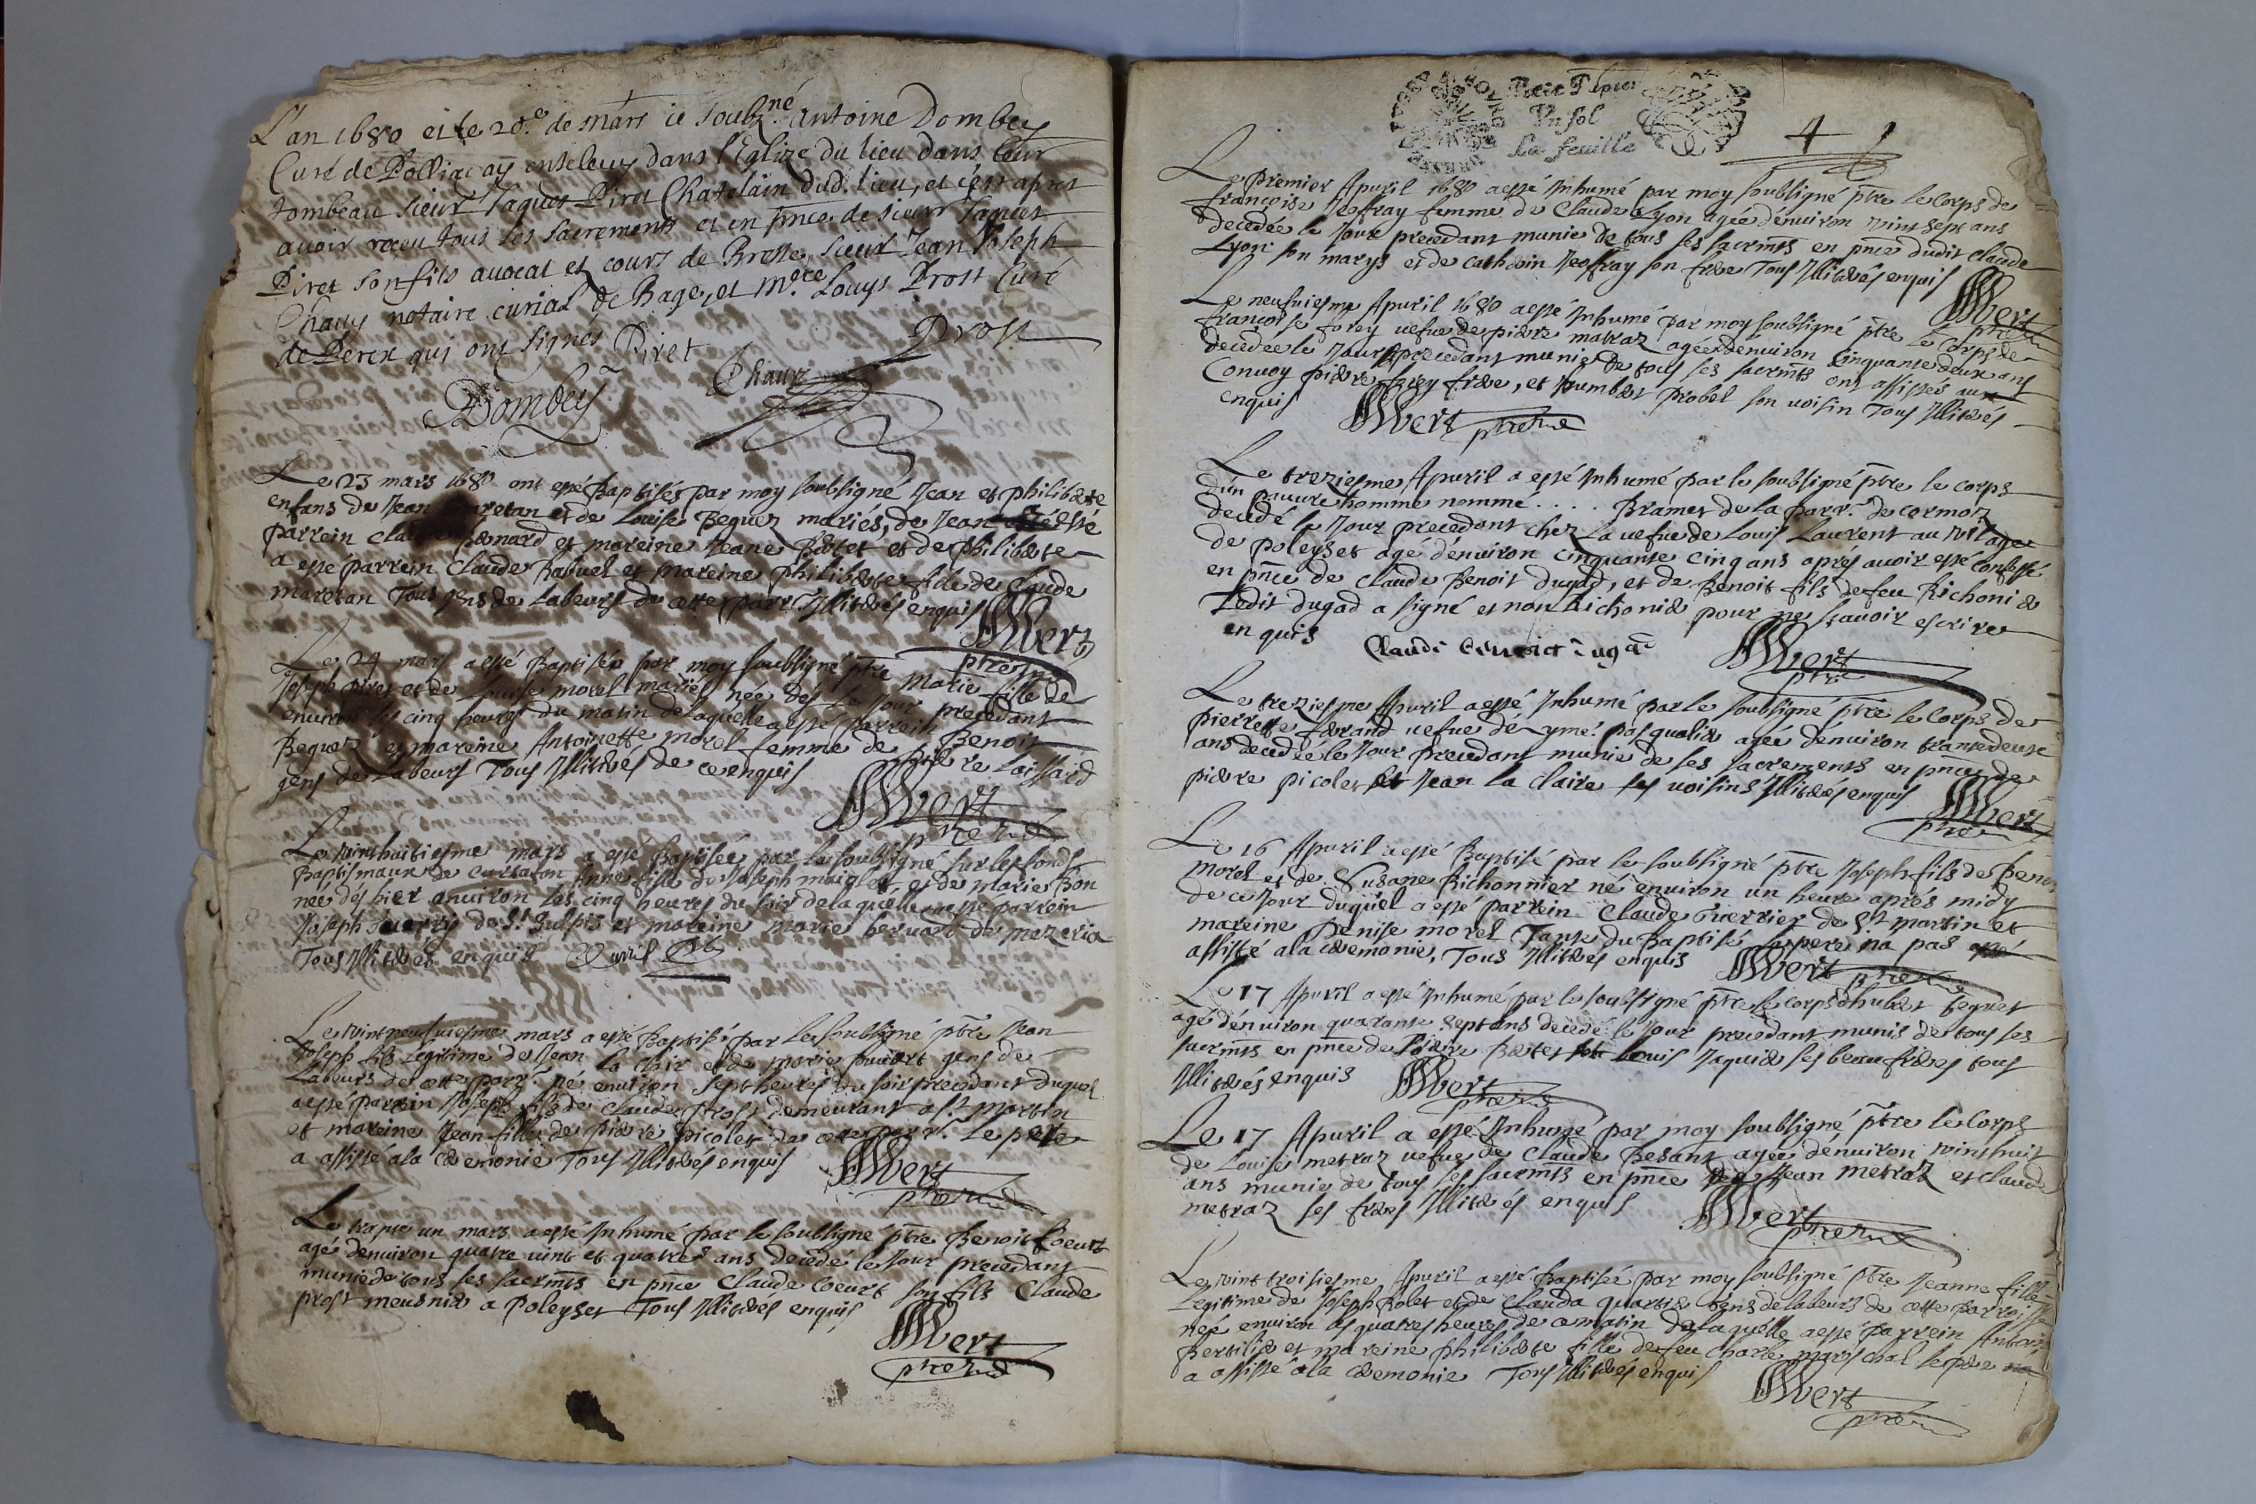 L'an 1680 et le 20e de mars ie soubzné Antoine Dombey
Curé de Polliac ay ensevely dans l'Eglize du lieu dans leur
tombeau sieur Jaques Piret Chatelain dud. lieu, et c'est apres
avoir receu tous ses sacrements et en pnce de sieur Jaques
Piret son fils avocat es cours de Bresse, sieur Jean Joseph
Chaux notaire curial de Bage, et Mre Louys Prost Curé
de Perex qui ont signés Piret
Prost
Chaux
Dombey
Le 23 mars 1680 ont esté Baptisés par moy soubsigné Jean et philiberte
enfans de Jean maretan et de Louise Beguez mariés, de Jean a esté
parrein Claude benard et mareine Jeane Bertet et de philiberte
a esté parrein Claude Ravuel et mareine philiberte fille de Claude
maretan Tous gens de Labeurs de cette parr. Illiterés enquis
AWert
ptre
Le 24 mars a esté Baptisée par moy soubsigné ptre marie fille de
Joseph piret et de Louise morel mariés née des le jour precedant
environ les cinq heures du matin de laquelle a esté parrein Benoit
Beguez et mareine Antoinette morel femme de pierre Loissard
gens de Labeurs Tous Illiterés de ce enquis
AWert
ptre
Le vinthuitiesme mars a esté Baptisée par le soubsigné sur les fonds
Baptismaux de Curtafon Anne fille de Joseph maiglet, et de marie Bon
née dés hier environ les cinq heures du soir de laquelle a esté parrein
Joseph guerry de St Sulpis et mareine marie bernard de mezeria
Tous Illiterés enquis
Le vintneufviesme mars a esté Baptisé par le soubsigné ptre Jean
Joseph fils Legitime de Jean La Clair et de marie gens de
Labeurs de cette parr. né environ sept heures du soir precedant duquel
a esté parrein Joseph fils de Claude prost demeurant a St martin
et mareine Jean fille de pierre picolet de cette parr. Le pere
a assisté a la ceremonie Tous Illiterés enquis
AWert
ptre
Le trante un mars a esté Inhumé par le soubsigné ptre Benoit Coeurt
agé denviron quatre vint et quatre ans decedé le jour precedant
munie de tous ses sacrmts en pnce Claude Coeurt son fils Claude
prost meusnier a poleyset Tous Illiterés enquis
AWert
ptre
Un sol
La feuille
4
Le premier Apvril 1680 a esté Inhumé par moy soubsigné ptre le Corps de
françoise Jeoffray femme de Claude Lyon agée denviron vint sept ans
decedée le jour precedant munie de tous ses sacrmts en pnce dudit Claude
Lyon son marys et de Catherin Jeofray son frere Tous Illiterés enquis
AWert
ptre
Le neufviesme Apvril 1680 a esté Inhumé par moy soubsigné ptre le Corps de
françoise forey vefue de pierre matraz agée denviron Cinquante deux ans
decedée le jour precedant munie de tous ses sacrmts ont assistés au
Convoy pierre forey frere, et humbert probel son voisin Tous Illiterés
enquis
AWert ptre
Le treziesme Apvril a esté Inhumé par le soubsigné ptre le corps
d'un pauvre homme nommé . . . . Bramet de la parr. de cormoz
decedé le jour precedant chez La vefue de Louis Laurent au vilage
de poleyset agé d'environ cinquante cinq ans aprés avoir esté Confessé
en pnce de Claude Benoit dugad, et de Benoit fils de feu Richonier
Ledit dugad a signé et non Richonier pour ne sçavoir escrire
enquis
Claude benoict dugad
AWert
ptre
Le treziesme Apvril a esté Inhumé par le soubsigné ptre le Corps de
pierrette ferand vefue de yme. pasqualier agée denviron trantedeux
ans decedée le jour precedant munie de ses sacrements en pnce de
pierre picolet et Jean La Claire ses voisins Illiterés enquis
AWert
ptre
Le 16 Apvril a esté Baptisé par le soubsigné ptre Joseph fils de Benoit
Morel et de Susane Richonnier né environ un heure aprés midy
de ce jour duquel a esté parrein Claude Guerrier de St martin et
mareine Denise morel Tante du Baptisé le pere na pas
assisté a la ceremonie, Tous Illiterés enquis
AWert ptre
Le 17 Apvril a esté Inhumé par le soubsigné ptre le corps d'hubert beguet
agé d'environ quarante sept ans decedé le jour precedant munis de tous ses
sacrmts en pnce de Pierre Bertet et Louis Jaquier ses beaufreres tous
Illiterés enquis
AWert
ptre
Le 17 Apvril a esté Inhumé par moy soubsigné ptre le Corps
de Louise metraz vefue de Claude Besant agée d'environ vinthuit
ans munie de tous ses sacrmts en pnce de Jean metraz et Claude
metraz ses freres Illiterés enquis
AWert
ptre
Le vint troisiesme Apvril a esté Baptisée par moy soubsigné ptre Jeanne fille
Legitime de Joseph Rolet et de Clauda quartier gens de labeurs de cette parroisse
née environ les quatres heures de ce matin de laquelle a esté parrein Antoine
Bertilier et mareine philiberte fille de feu Charle mareschal le pere
a assisté a la ceremonie Tous Illiterés enquis
AWert
ptre